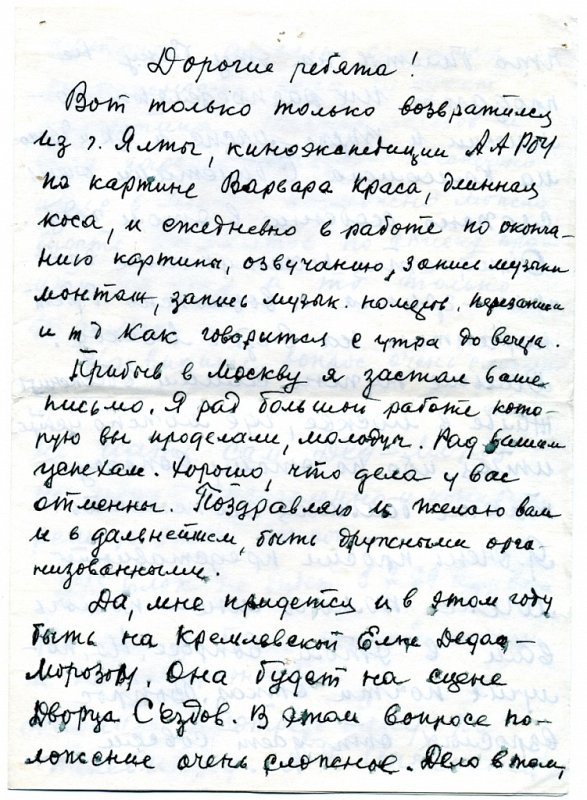 Дорогие ребята!
Вот только только возвратился
из г. Ялты, киноэкспедиции А А РОУ
по картине Варвара Краса, длинная
коса, и ежедневно в работе по оконча-
нию картины, озвучанию, запись музыки
монтаж, запись музык. номеров, перезаписи
и т д Как говорится с утра до вечера.
Прибыв в Москву я застал ваше
письмо. Я рад большой работе кото-
рую вы проделали, молодцы. Рад вашим
успехам. Хорошо, что дела у вас
отменны. Поздравляю и желаю вам
и в дальнейшем, быть дружными орга
низованными.
Да, мне придется и в этом году
быть на Кремлевской Елке Дедом-
Морозом. Она будет на сцене
Дворца Съездов. В этом вопросе по-
ложение очень сложное. Дело в том,